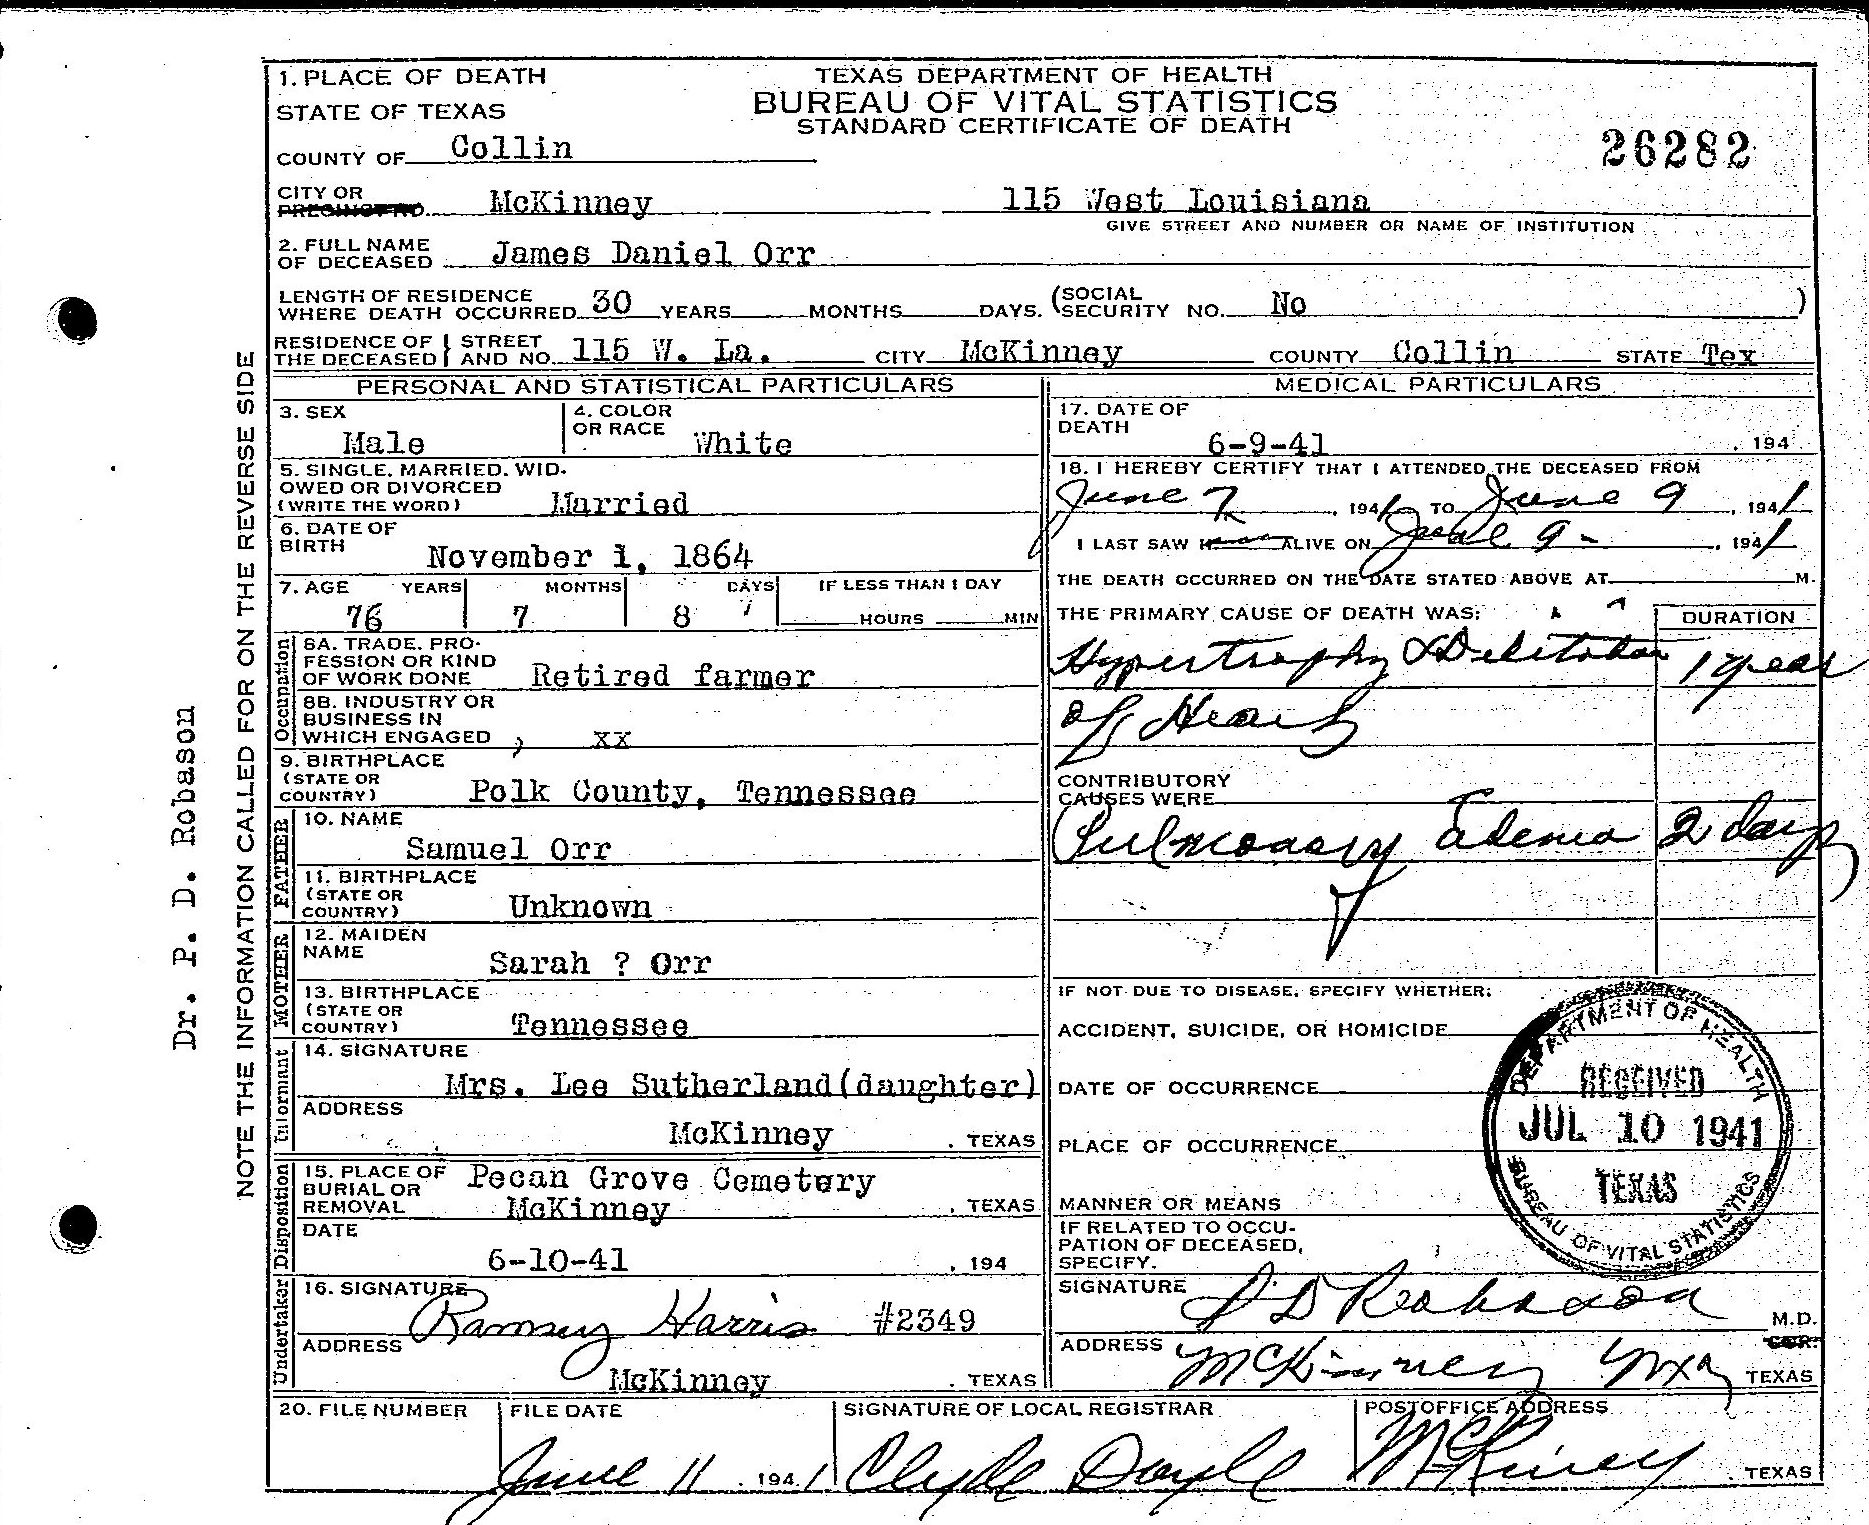 1. PLACE OF DEATH
STATE OF TEXAS
COUNTY OF Collin
TEXAS DEPARTMENT OF HEALTH
BUREAU OF VITAL STATISTICS
STANDARD CERTIFICATE OF DEATH
26282
CITY OR PRECINCT NO. McKinney 115 West Louisiana
GIVE STREET AND NUMBER OR NAME OF INSTITUTION
2. FULL NAME
OF DECEASED James Daniel Orr
LENGTH OF RESIDENCE
WHERE DEATH OCCURRED 30 YEARS MONTHS DAYS. (SOCIAL SECURITY NO. No )
RESIDENCE OF THE DECEASED STREET AND NO. 115 W. La. CITY McKinney COUNTY Collin STATE Tex
PERSONAL AND STATISTICAL PARTICULARS
3. SEX
Male
4. COLOR
OR RACE White
5. SINGLE, MARRIED, WID-
OWED OR DIVORCED
(WRITE THE WORD) Married
6. DATE OF
BIRTH November 1, 1864
7. AGE YEARS MONTHS DAYS IF LESS THAN 1 DAY
76 7 8 HOURS MIN
Occupation
8A. TRADE, PRO-
FESSION OR KIND
OF WORK DONE Retired farmer
8B. INDUSTRY OR
BUSINESS IN
WHICH ENGAGED , xx
9. BIRTHPLACE
(STATE OR
COUNTRY) Polk County, Tennessee
FATHER
10. NAME
Samuel Orr
11. BIRTHPLACE
(STATE OR
COUNTRY) Unknown
MOTHER
12. MAIDEN
NAME Sarah ? Orr
13. BIRTHPLACE
(STATE OR
COUNTRY) Tennessee
Informant
14. SIGNATURE
Mrs. Lee Sutherland(daughter)
ADDRESS
McKinney , TEXAS
Disposition
15. PLACE OF
BURIAL OR
REMOVAL Pecan Grove Cemetery
McKinney , TEXAS
DATE
6-10-41 , 194
Undertaker
16. SIGNATURE
Ramsey Harris #2349
ADDRESS
McKinney , TEXAS
MEDICAL PARTICULARS
17. DATE OF
DEATH 6-9-41 , 194
18. I HEREBY CERTIFY THAT I ATTENDED THE DECEASED FROM
June 7, 1941 TO June 9, 1941
I LAST SAW H ALIVE ON June 9 - , 1941
THE DEATH OCCURRED ON THE DATE STATED ABOVE AT M.
THE PRIMARY CAUSE OF DEATH WAS: DURATION
Hypertrophy & Dilitation 1 year
of Heart
CONTRIBUTORY
CAUSES WERE
Pulmonary Edema 2 days
IF NOT DUE TO DISEASE, SPECIFY WHETHER:
ACCIDENT, SUICIDE, OR HOMICIDE
DATE OF OCCURRENCE
PLACE OF OCCURRENCE
MANNER OR MEANS
IF RELATED TO OCCU-
PATION OF DECEASED,
SPECIFY.
DEPARTMENT OF HEALTH
RECEIVED
JUL 10 1941
TEXAS
BUREAU OF VITAL STATISTICS
SIGNATURE P D Robason M.D.
COR.
ADDRESS McKinney TEXAS
20. FILE NUMBER
FILE DATE
June 11, 1941
SIGNATURE OF LOCAL REGISTRAR
Clyde Doyle
POSTOFFICE ADDRESS
McKinney , TEXAS
NOTE THE INFORMATION CALLED FOR ON THE REVERSE SIDE
Dr. P. D. Robason